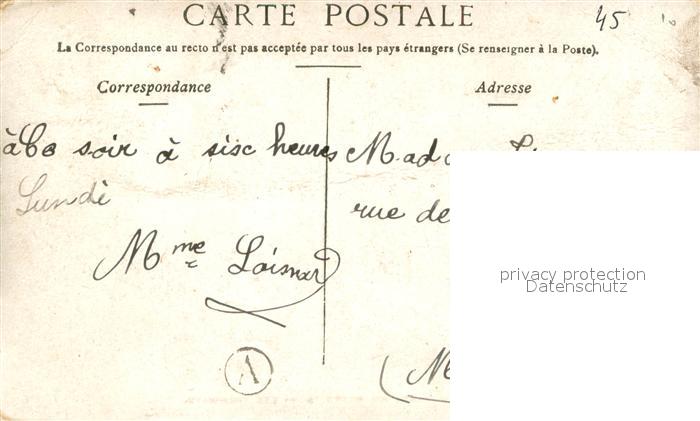 CARTE POSTALE
45
La Correspondance au recto n'est pas acceptée par tous les pays étrangers (Se renseigner à la Poste).
Correspondance
Adresse
soir à sisc heures
Lundi
Mme
rue de
A
privacy protection
Datenschutz